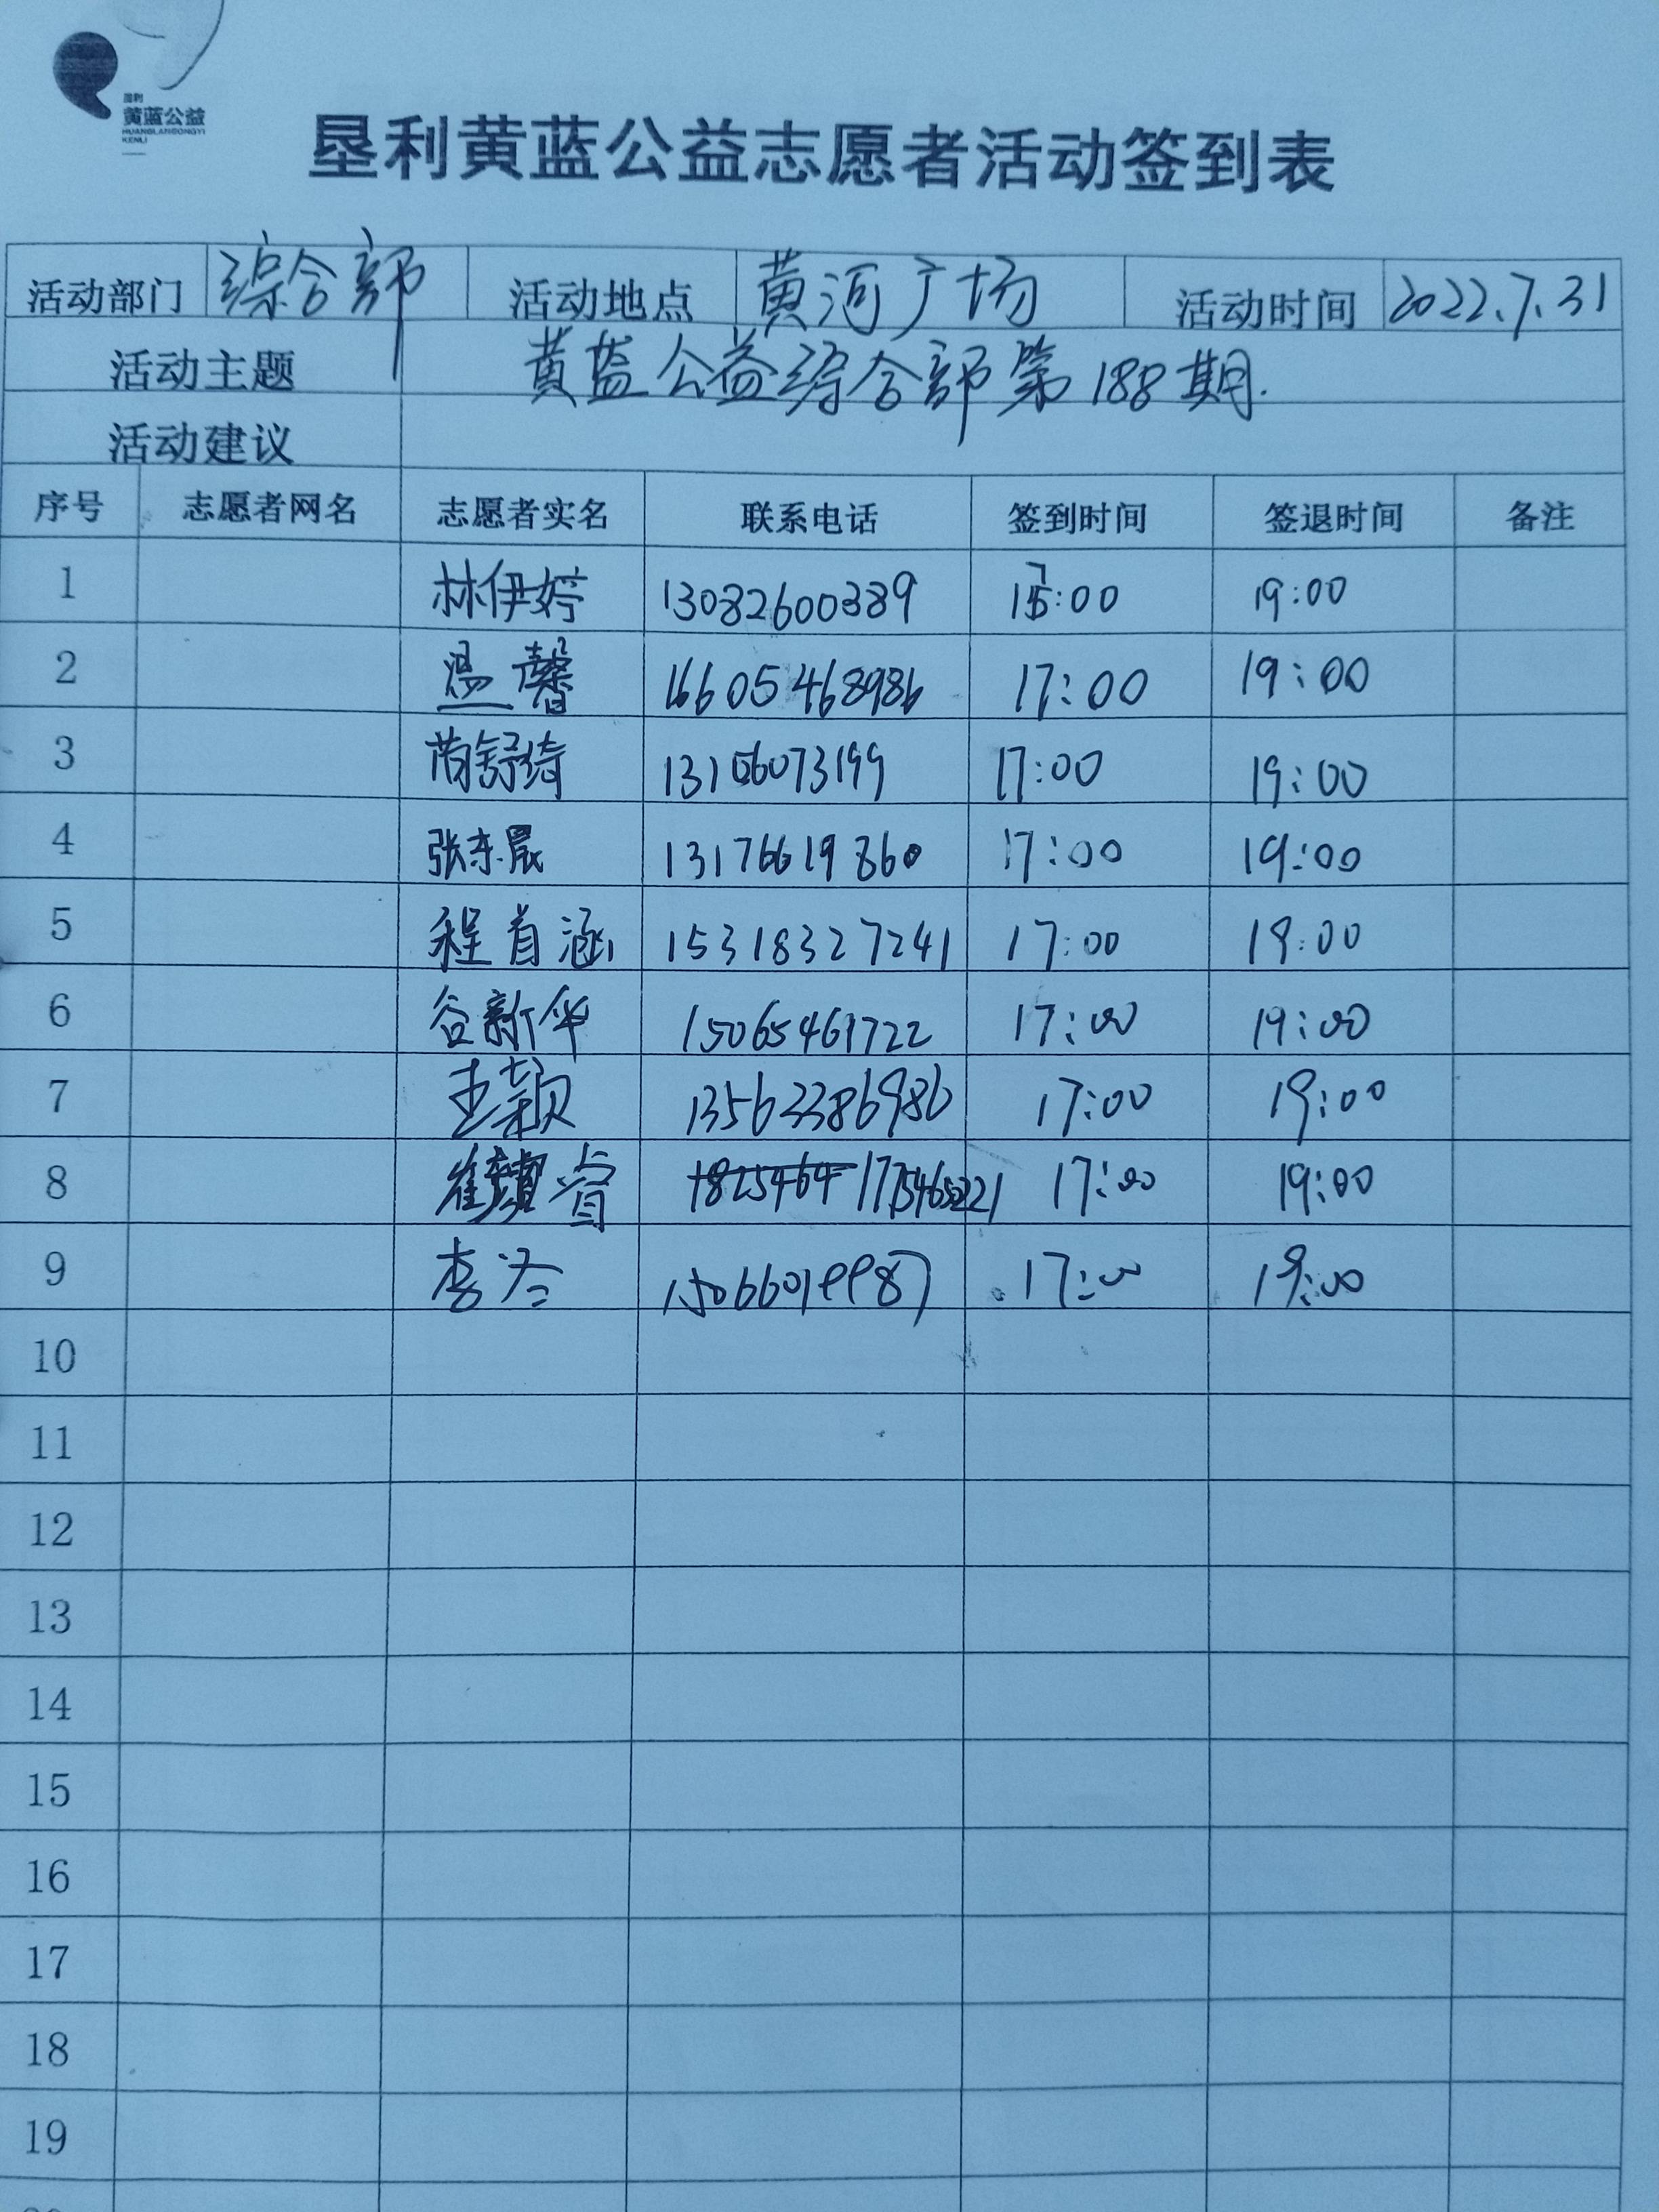 垦利
黄蓝公益
HUANGLANGONGYI
KENLI
垦利黄蓝公益志愿者活动签到表
活动部门 综合部 活动地点 黄河广场 活动时间 2022.7.31
活动主题 黄蓝公益综合部第188期.
活动建议
序号 志愿者网名 志愿者实名 联系电话 签到时间 签退时间 备注
1 林伊婷 13082600389 17:00 19:00
2 温馨 16605468986 17:00 19:00
3 舒绮 13106073199 17:00 19:00
4 张东晟 13176619860 17:00 19:00
5 程首涵 15318327241 17:00 19:00
6 谷新华 15065461722 17:00 19:00
7 王颖 13563386986 17:00 19:00
8 崔 17:00 19:00
9 李 15066019987 17:00 19:00
10
11
12
13
14
15
16
17
18
19